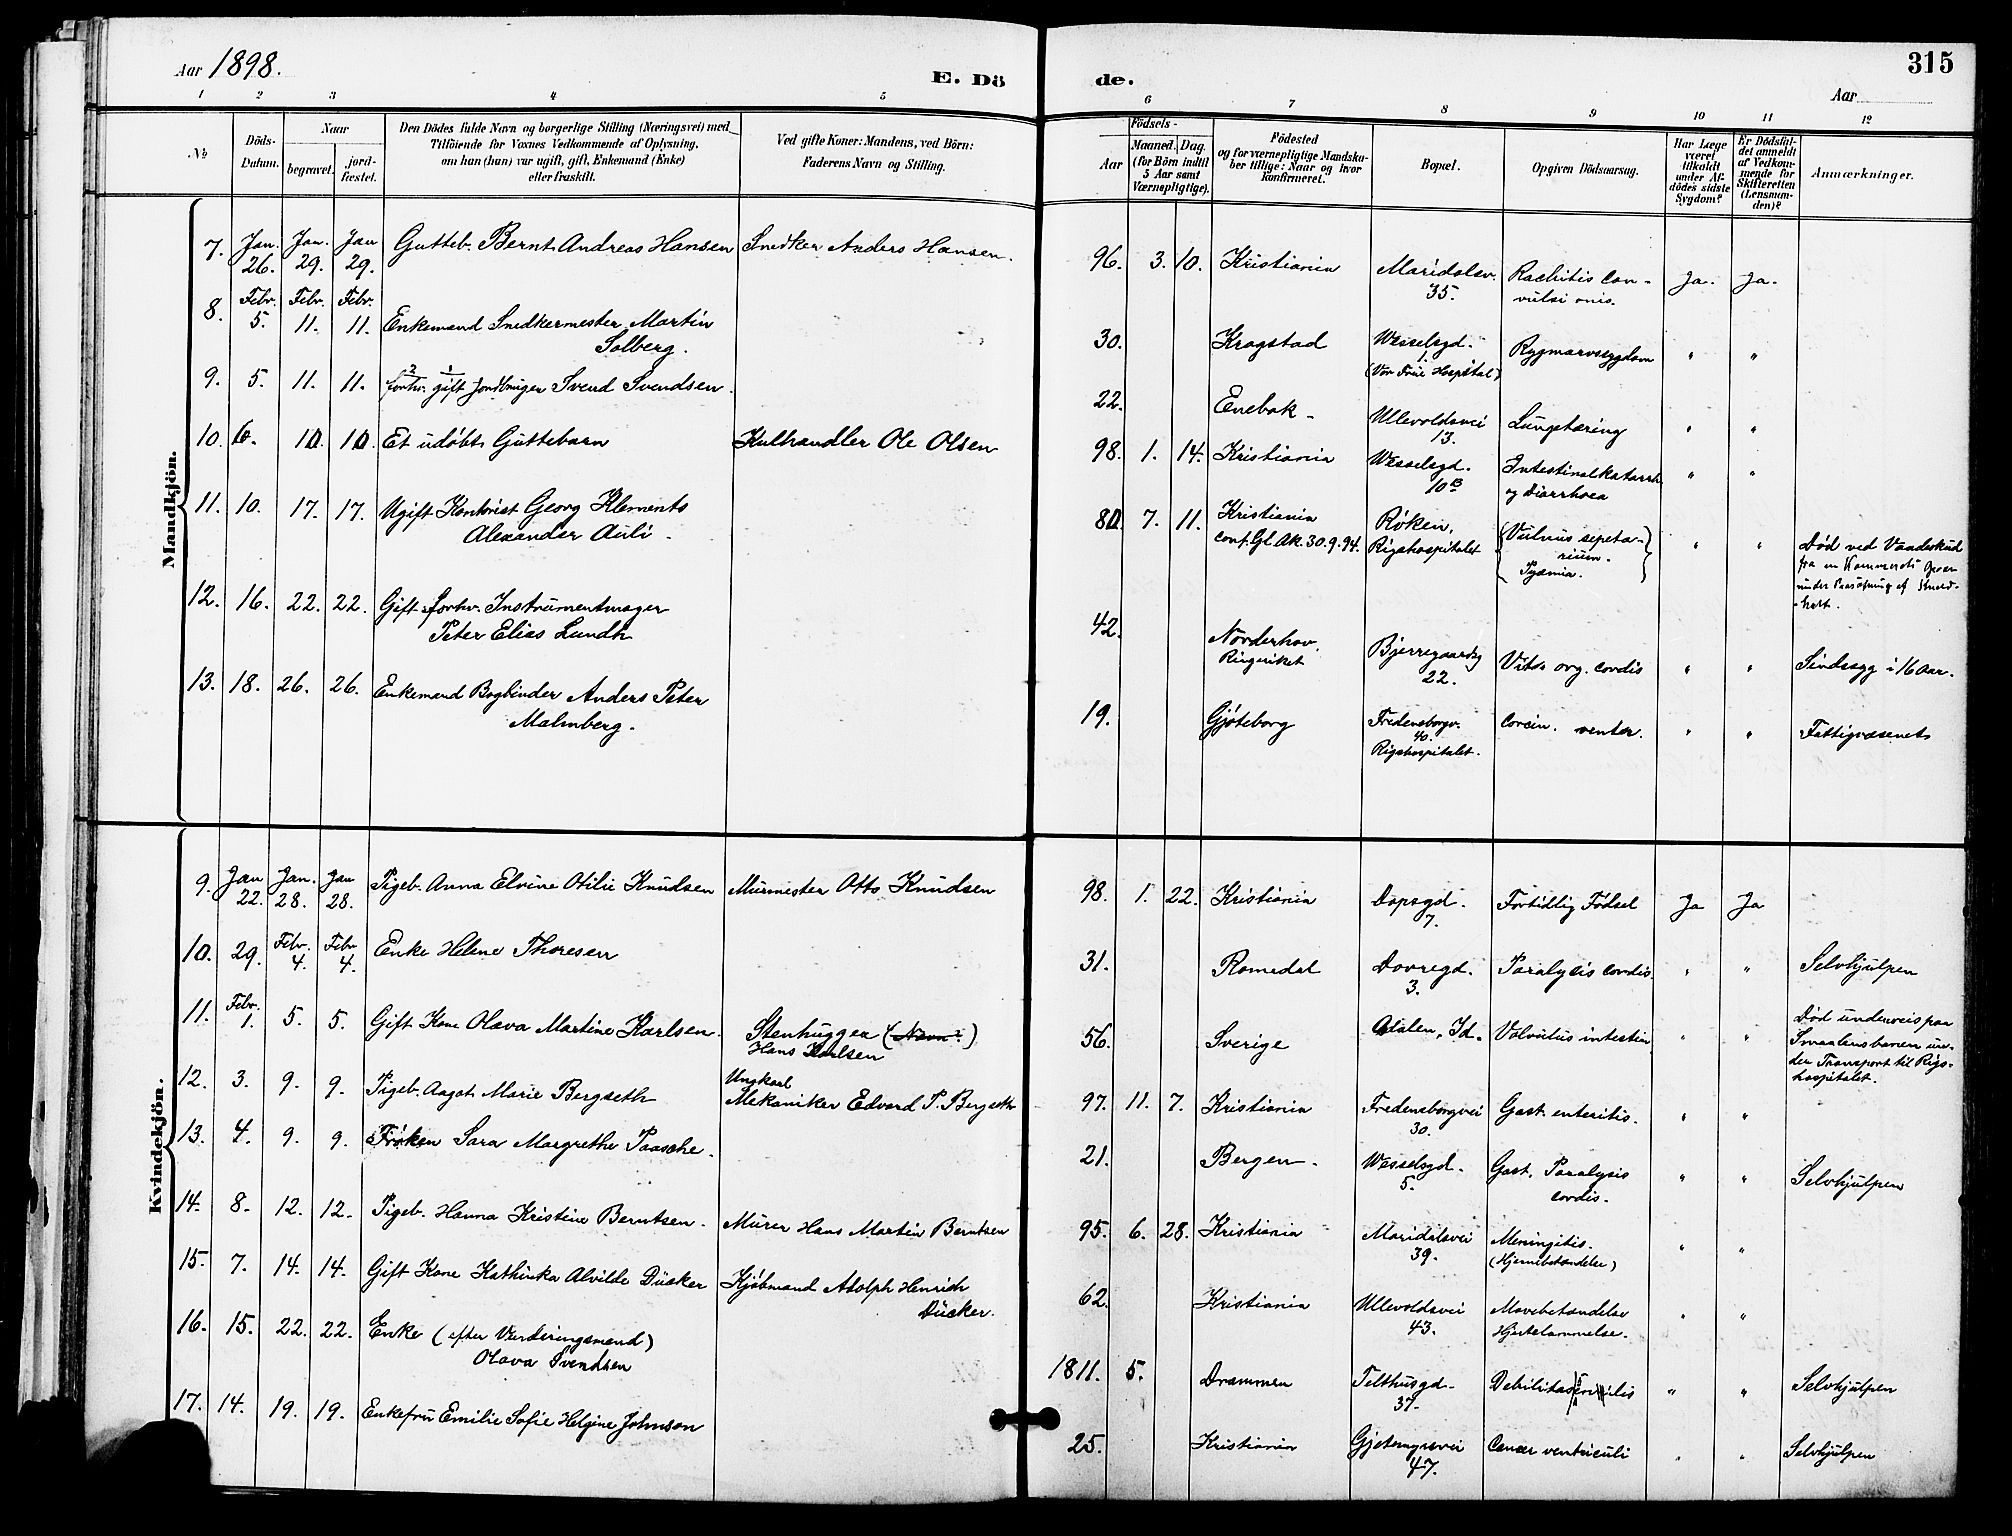 Aar 1898.
E. Dö
de.
Aar
315
1 2 3 4 5
6 7 8 9 10 11 12
No
Döds-Datum.
Naar
begravet.
jord-fæstet.
Den Dödes fulde Navn og borgerlige Stilling (Næringsvei) med
Tilföiende for Voxnes Vedkommende af Oplysning,
om han (hun) var ugift, gift, Enkemand (Enke)
eller fraskilt.
Ved gifte Koner: Mandens, ved Börn:
Faderens Navn og Stilling.
Födsels-
Aar
Maaned. Dag.
(for Börn indtil
5 Aar samt
Værnepligtige).
Födested
og for værnepligtige Mandska-
ber tillige: Naar og hvor
konfirmeret.
Bopæl.
Opgiven Dödsaarsag.
Har Læge
været
tilkaldt
under Af-
dödes sidste
Sygdom?
Er Dödsfal-
det anmeldt
af Vedkom-
mende for
Skifteretten
(Lensman-
den)?
Anmærkninger.
Mandkjön.
7. Jan. 26. Jan. 29. Jan 29. Gutteb. Bernt Andreas Hansen Snedker Anders Hansen. 96. 3. 10. Kristiania Maridalsv. 35. Rachitis Con-
vulsionis. Ja. Ja.
8. Febr. 5. Febr. 11. Febr. 11. Enkemand Snedkermester Martin
Solberg. 30. Krogstad Wesselsgd. 1. (Vor Frue Hospital) Rygmarvssygdom " "
9. 5. 11. 11. forhv. gift Jordbruger Svend Svendsen. 22. Enebak - Ullevoldsvei 13. Lungetæring " "
10. 6. 10. 10. Et udöbt Guttebarn Kulhandler Ole Olsen 98. 1. 14. Kristiania Wesselsgd. 10 B Intestinalkatarrh
og Diarrhoea " "
11. 10. 17. 17. Ugift Kontorist Georg Klements
Alexander Auli. 80. 7. 11. Kristiania
conf. Gl. Ak. 30.9.94. Röken,
Rigshospitalet Vulnus
Pyæmia. " " Död ved Vaadeskud
fra en
under af
12. 16. 22. 22. Gift forhv. Instrumentmager
Peter Elias Lundh 42. Norderhov,
Ringeriket Bjerregaardsg 22. Vit. org. cordis " " Sindssyg i 16 Aar.
13. 18. 26. 26. Enkemand Bogbinder Anders Peter
Malmberg. 19. Gjöteborg Fredensborgv. 40.
Rigshospitalet. Carcin. venter. " " Fattigvæsenet
Kvindekjön.
9. Jan 22. Jan. 28. Jan 28. Pigeb. Anna Elvine Otilie Knudsen Murmester Otto Knudsen 98. 1. 22. Kristiania Dopsgd. 7. Fortidlig Födsel Ja Ja
10. 29. Febr. 4. Febr 4. Enke Helene Thoresen 31. Romedal Dovregd. 3. Paralysis cordis. " " Selvhjulpen
11. Febr. 1. 5. 5. Gift Kone Olava Martine Karlsen. Stenhugger (Navn?)
Hans Karlsen 56. Sverige Id. Volvulus intestin " " Död underveis paa
Smaalensbanen un-
der Transport til Rigs-
hospitalet.
12. 3. 9. 9. Pigeb. Aagot Marie Bergseth Ungkarl
Mekaniker Edvard P. Bergseth 97. 11. 7. Kristiania Fredensborgvei 30. Gast. enteritis. " "
13. 4. 9. 9. Fröken Sara Margrethe Paasche. 21. Bergen - Wesselsgd. 5. Gast. Paralysis
cordis. " " Selvhjulpen
14. 8. 12. 12. Pigeb. Hanna Kristine Berntsen. Murer Hans Martin Berntsen 95. 6. 28. Kristiania Maridalsvei 39. Meningitis.
(Hjernebetændelse) " "
15. 7. 14. 14. Gift Kone Kathinka Alvilde Dücker Kjöbmand Adolph Henrich
Dücker. 62. Kristiania Ullevoldsvei 43. Mavebetændelse
Hjertelammelse. " "
16. 15. 22. 22. Enke (efter Værderingsmand)
Olava Svendsen 1811. 5. Drammen Telthusgd. 37. Debilitas senilis " " Selvhjulpen
17. 14. 19. 19. Enkefru Emilie Sofie Helgine Johnson 25. Kristiania Gjetemyrsvei 47. Cancer ventriculi " " Selvhjulpen